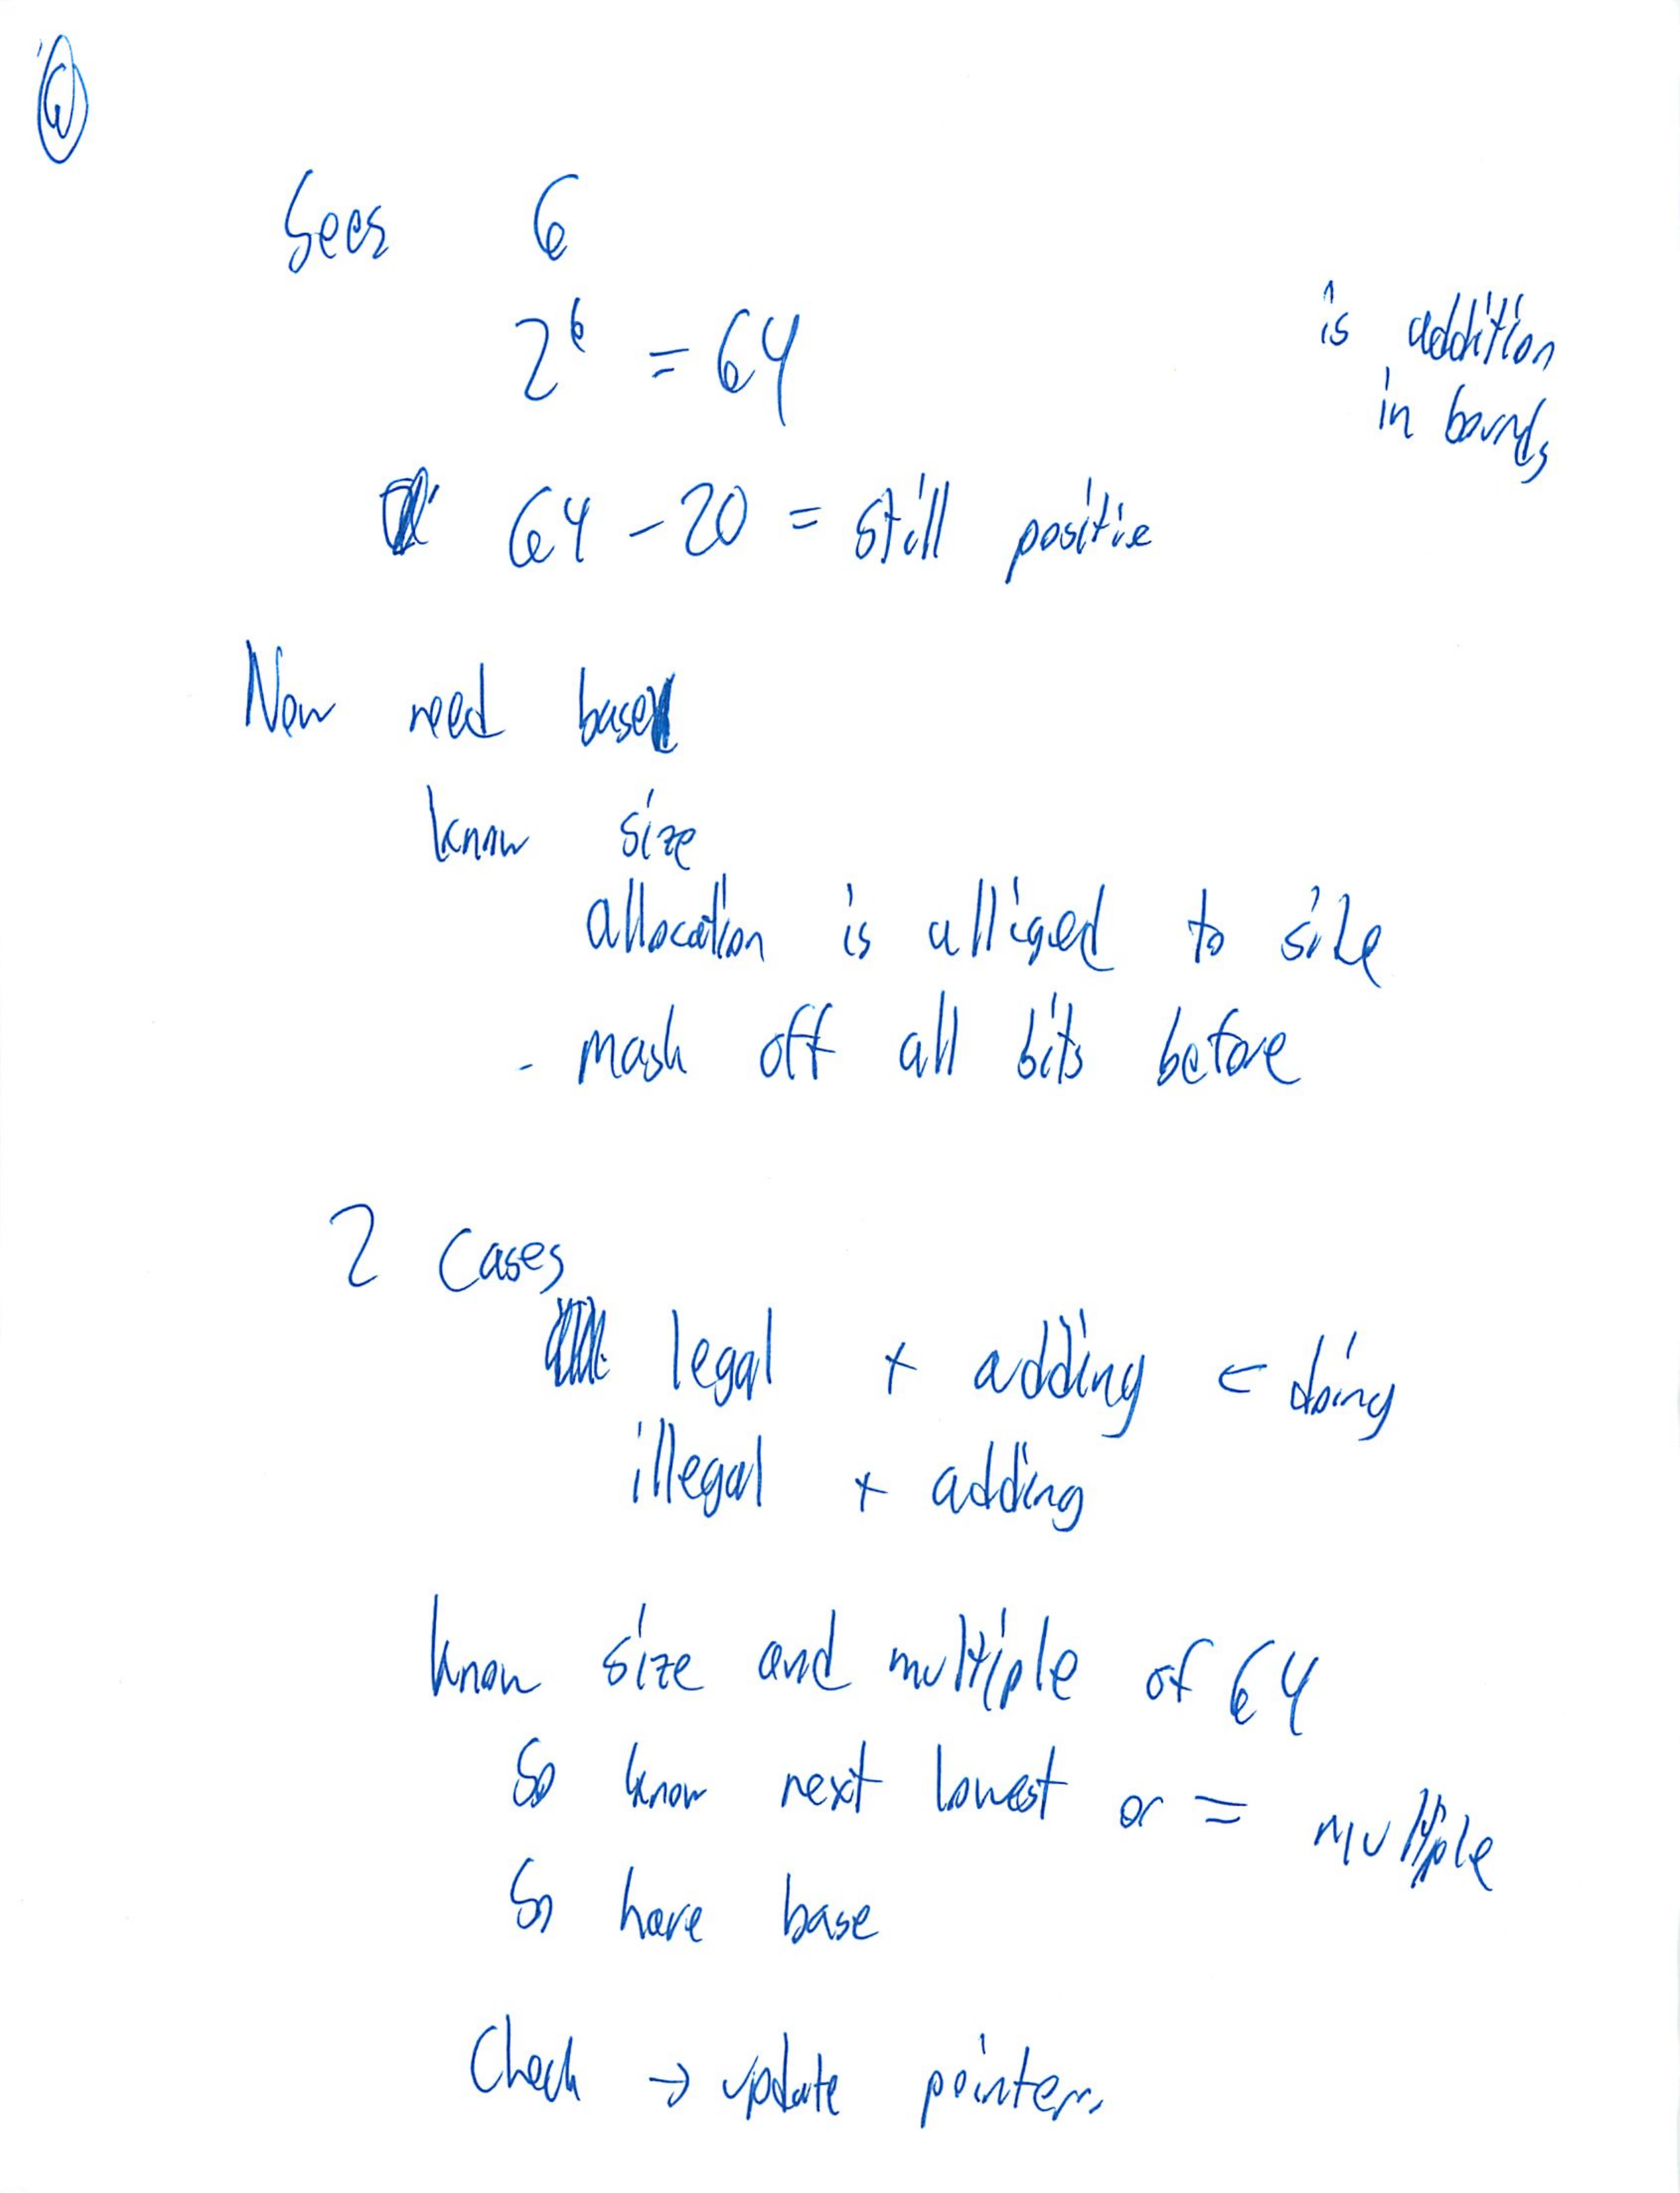 Sees 6
2^6 = 64
is addition
in bounds
64 - 20 = still positive
Now need base
know size
allocation is alliged to size
- mask off all bits before
2 cases
legal + adding ← doing
illegal + adding
know size and multiple of 64
So know next lowest or = multiple
So have base
Check → update pointer.